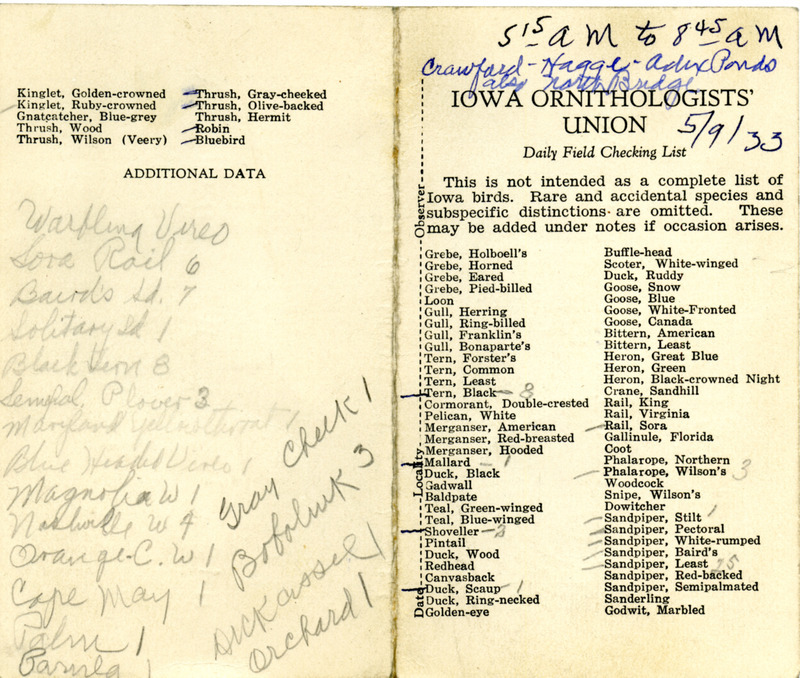 Kinglet, Golden-crowned
Kinglet, Ruby-crowned
Gnatcatcher, Blue-grey
Thrush, Wood
Thrush, Wilson (Veery)
Thrush, Gray-cheeked
Thrush, Olive-backed
Thrush, Hermit
Robin
Bluebird
ADDITIONAL DATA
Warbling Vireo
Sora Rail 6
Baird's Sd. 7
Solitary Sd 1
Black Tern 8
Semipal. Plover 3
Maryland Yellowthroat 1
Blue Headed Vireo 1
Magnolia W 1
Nashville W 4
Orange-C. W 1
Cape May 1
Palm 1
Parula 1
Gray Cheek 1
Bobolink 3
Dickcissel 1
Orchard 1
5 15 A M to 8 45 A M
Crawford - Hagge - Adix Ponds
also north Bridge
IOWA ORNITHOLOGISTS'
UNION
5/9/33
Daily Field Checking List
This is not intended as a complete list of
Iowa birds. Rare and accidental species and
subspecific distinctions are omitted. These
may be added under notes if occasion arises.
Observer
Locality
Date
Grebe, Holboell's
Grebe, Horned
Grebe, Eared
Grebe, Pied-billed
Loon
Gull, Herring
Gull, Ring-billed
Gull, Franklin's
Gull, Bonaparte's
Tern, Forster's
Tern, Common
Tern, Least
Tern, Black - 8
Cormorant, Double-crested
Pelican, White
Merganser, American
Merganser, Red-breasted
Merganser, Hooded
Mallard - 1
Duck, Black
Gadwall
Baldpate
Teal, Green-winged
Teal, Blue-winged
Shoveller - 2
Pintail
Duck, Wood
Redhead
Canvasback
Duck, Scaup - 1
Duck, Ring-necked
Golden-eye
Buffle-head
Scoter, White-winged
Duck, Ruddy
Goose, Snow
Goose, Blue
Goose, White-Fronted
Goose, Canada
Bittern, American
Bittern, Least
Heron, Great Blue
Heron, Green
Heron, Black-crowned Night
Crane, Sandhill
Rail, King
Rail, Virginia
Rail, Sora
Gallinule, Florida
Coot
Phalarope, Northern
Phalarope, Wilson's 3
Woodcock
Snipe, Wilson's
Dowitcher
Sandpiper, Stilt 1
Sandpiper, Pectoral
Sandpiper, White-rumped
Sandpiper, Baird's
Sandpiper, Least 25
Sandpiper, Red-backed
Sandpiper, Semipalmated
Sanderling
Godwit, Marbled